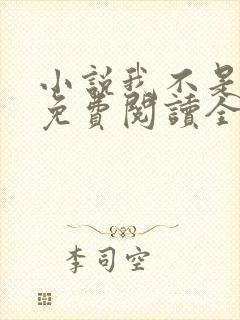 小説我不是
免費閱讀全
李司空